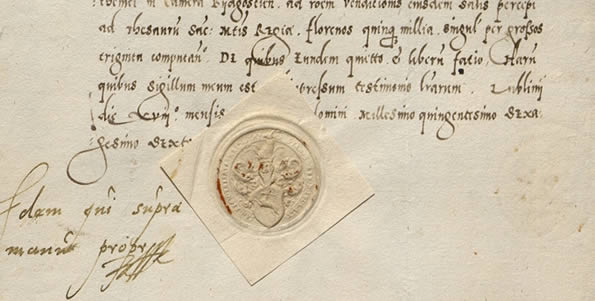 Camera Bydgostien. ad roem venditionis eiusdem salis percepi
ad thesaurū Sac. Mtis Regiæ, florenos quinq millia, singul per grossos
triginta computań. De quibus Eundem quitto, & liberū facio. Harū
quibus sigillum meum est pressum testimonio lrarum. Lublini
die mensis Domini Millesimo quingentesimo sexa
gesimo sext
Adam qui supra
manū propr